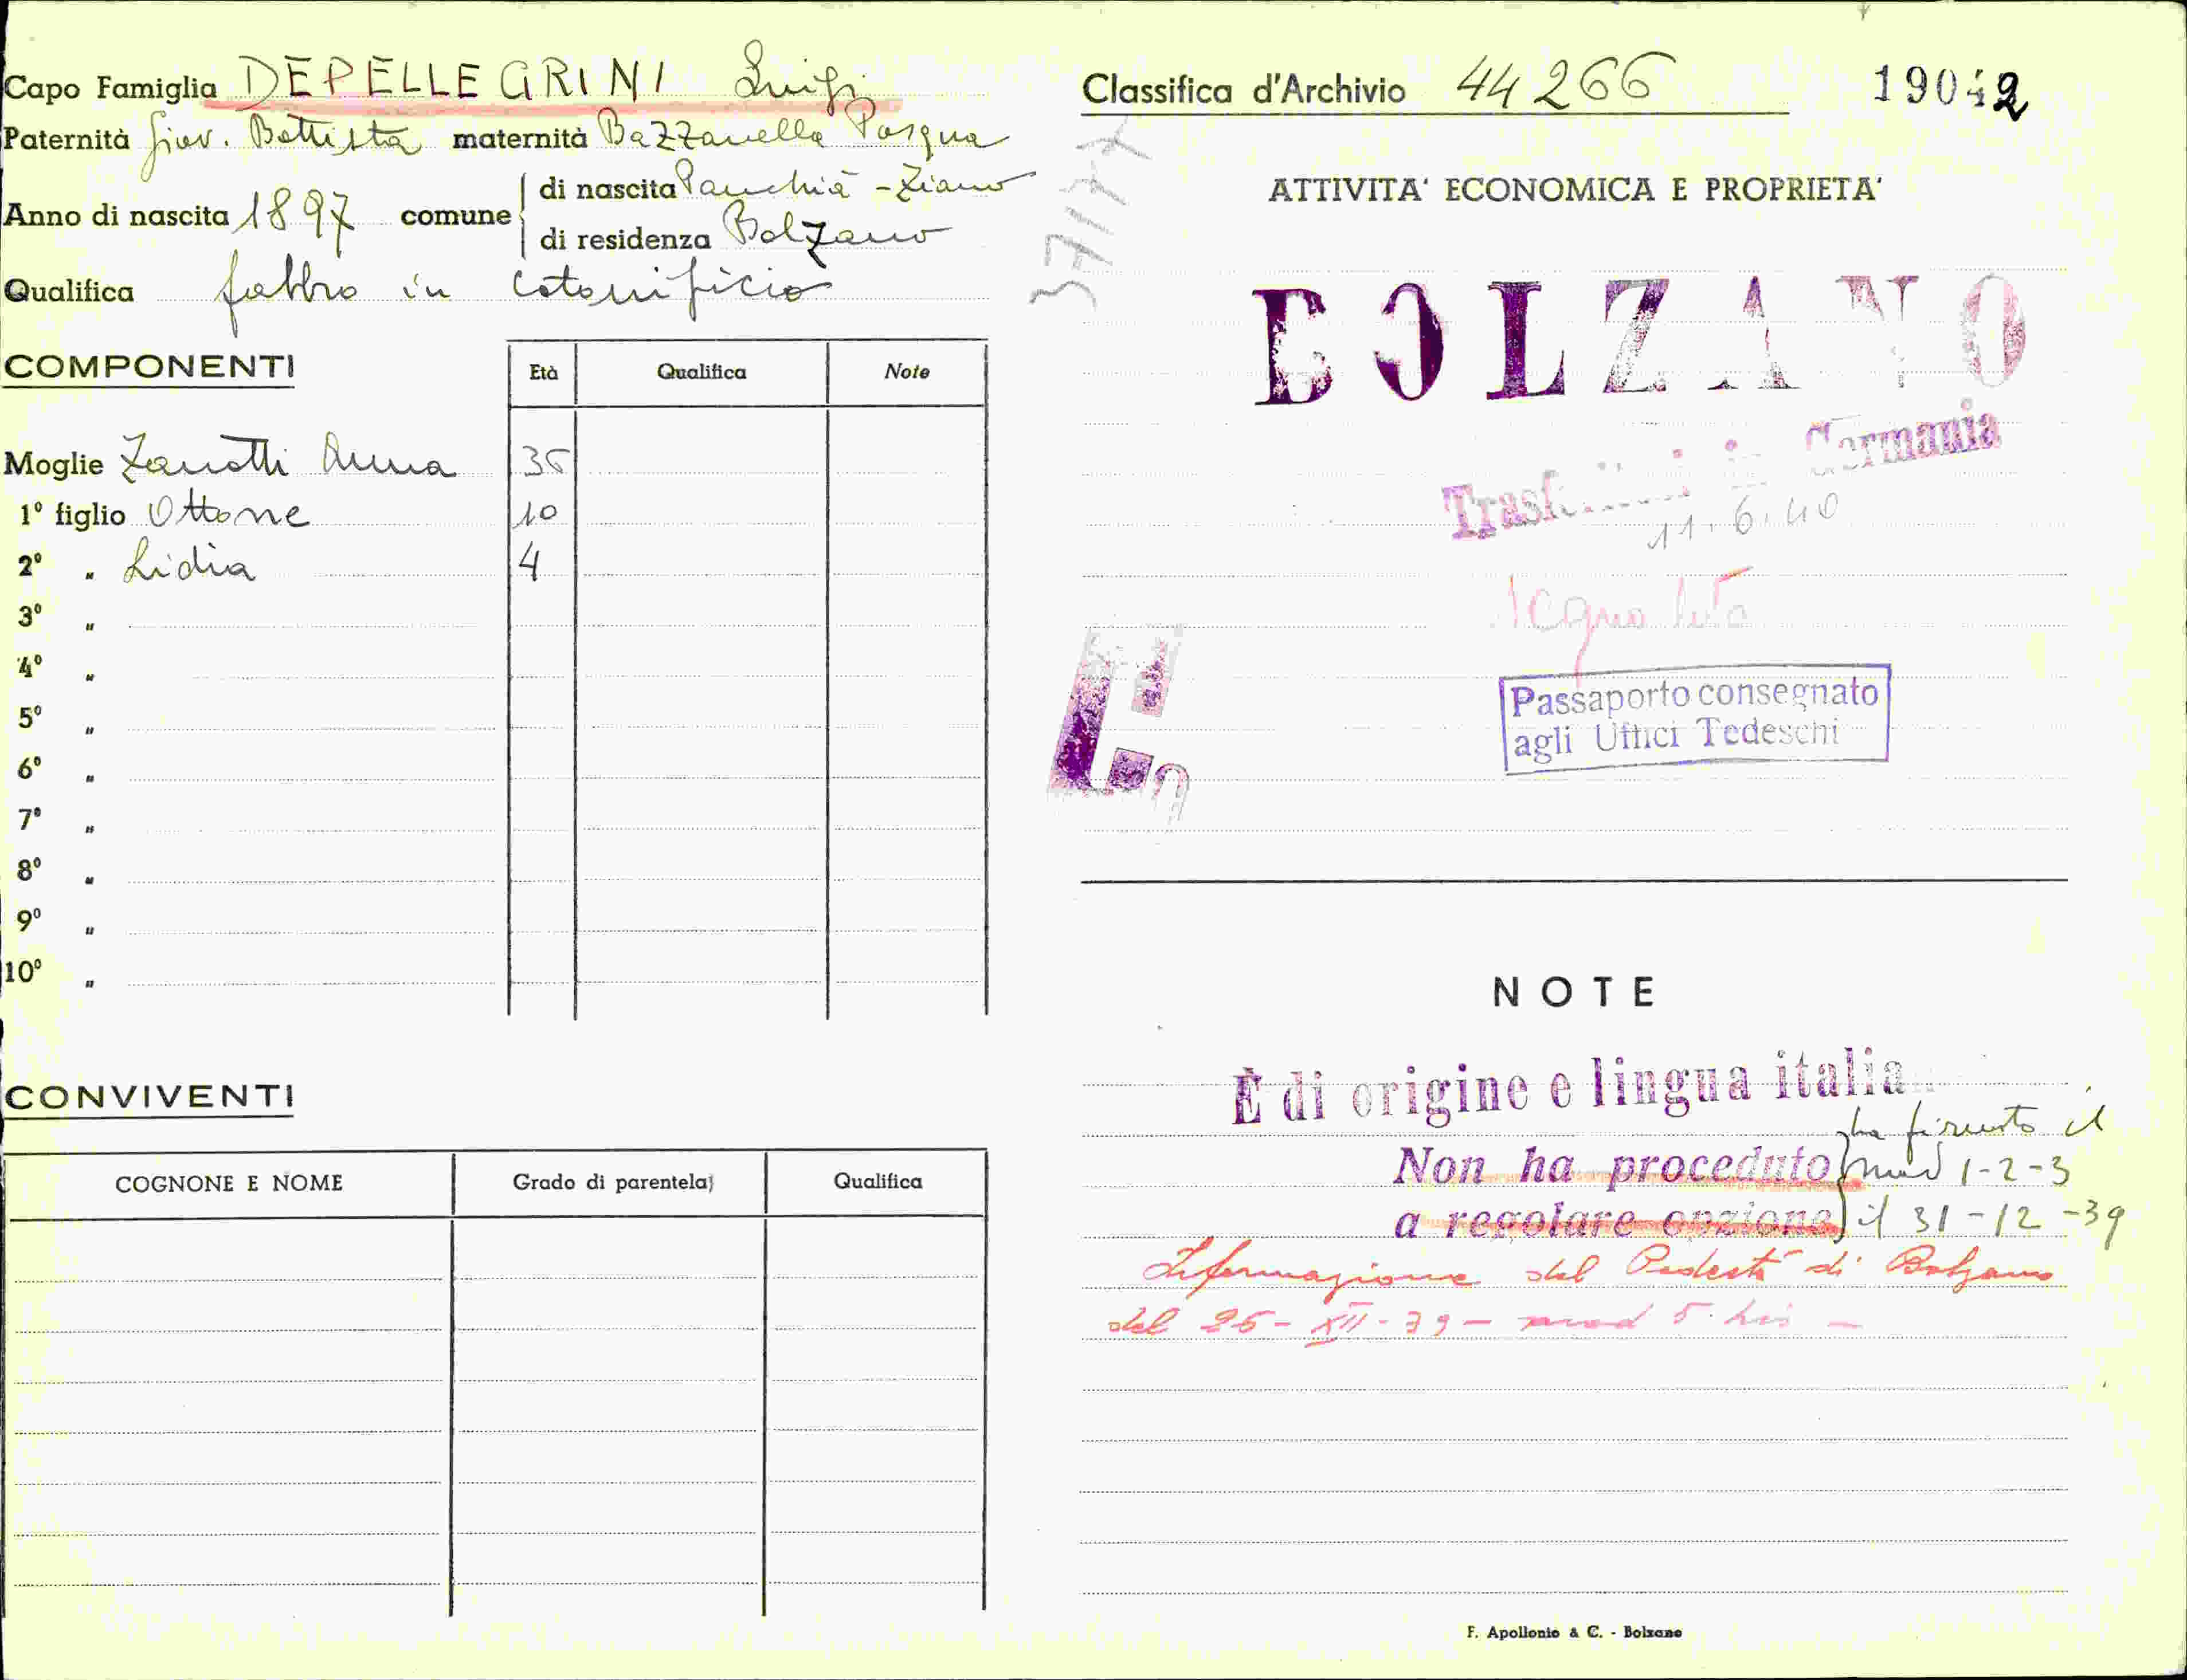 Capo Famiglia DEPELLEGRINI Luigi
Paternità Giov. Battista maternità Bazzanella Pasqua
Anno di nascita 1897 comune di nascita Panchià - Ziano
di residenza Bolzano
Qualifica fabbro in cotonificio
COMPONENTI Età Qualifica Note
Moglie Zanotti Anna 36
1º figlio Ottone 10
2º " Lidia 4
3º "
4º "
5º "
6º "
7º "
8º "
9º "
10º "
CONVIVENTI
COGNONE E NOME Grado di parentela Qualifica
Classifica d'Archivio 44266 19042
ATTIVITA' ECONOMICA E PROPRIETA'
BOLZANO
Trasferitosi in Germania
11.6.40
Passaporto consegnato
agli Uffici Tedeschi
NOTE
È di origine e lingua italia
ha firmato il
Non ha proceduto mod 1-2-3
a regolare opzione il 31-12-39
Informazione del Podestà di Bolzano
del 26-XII-39 - mod 5 bis -
F. Apollonio & C. - Bolzano